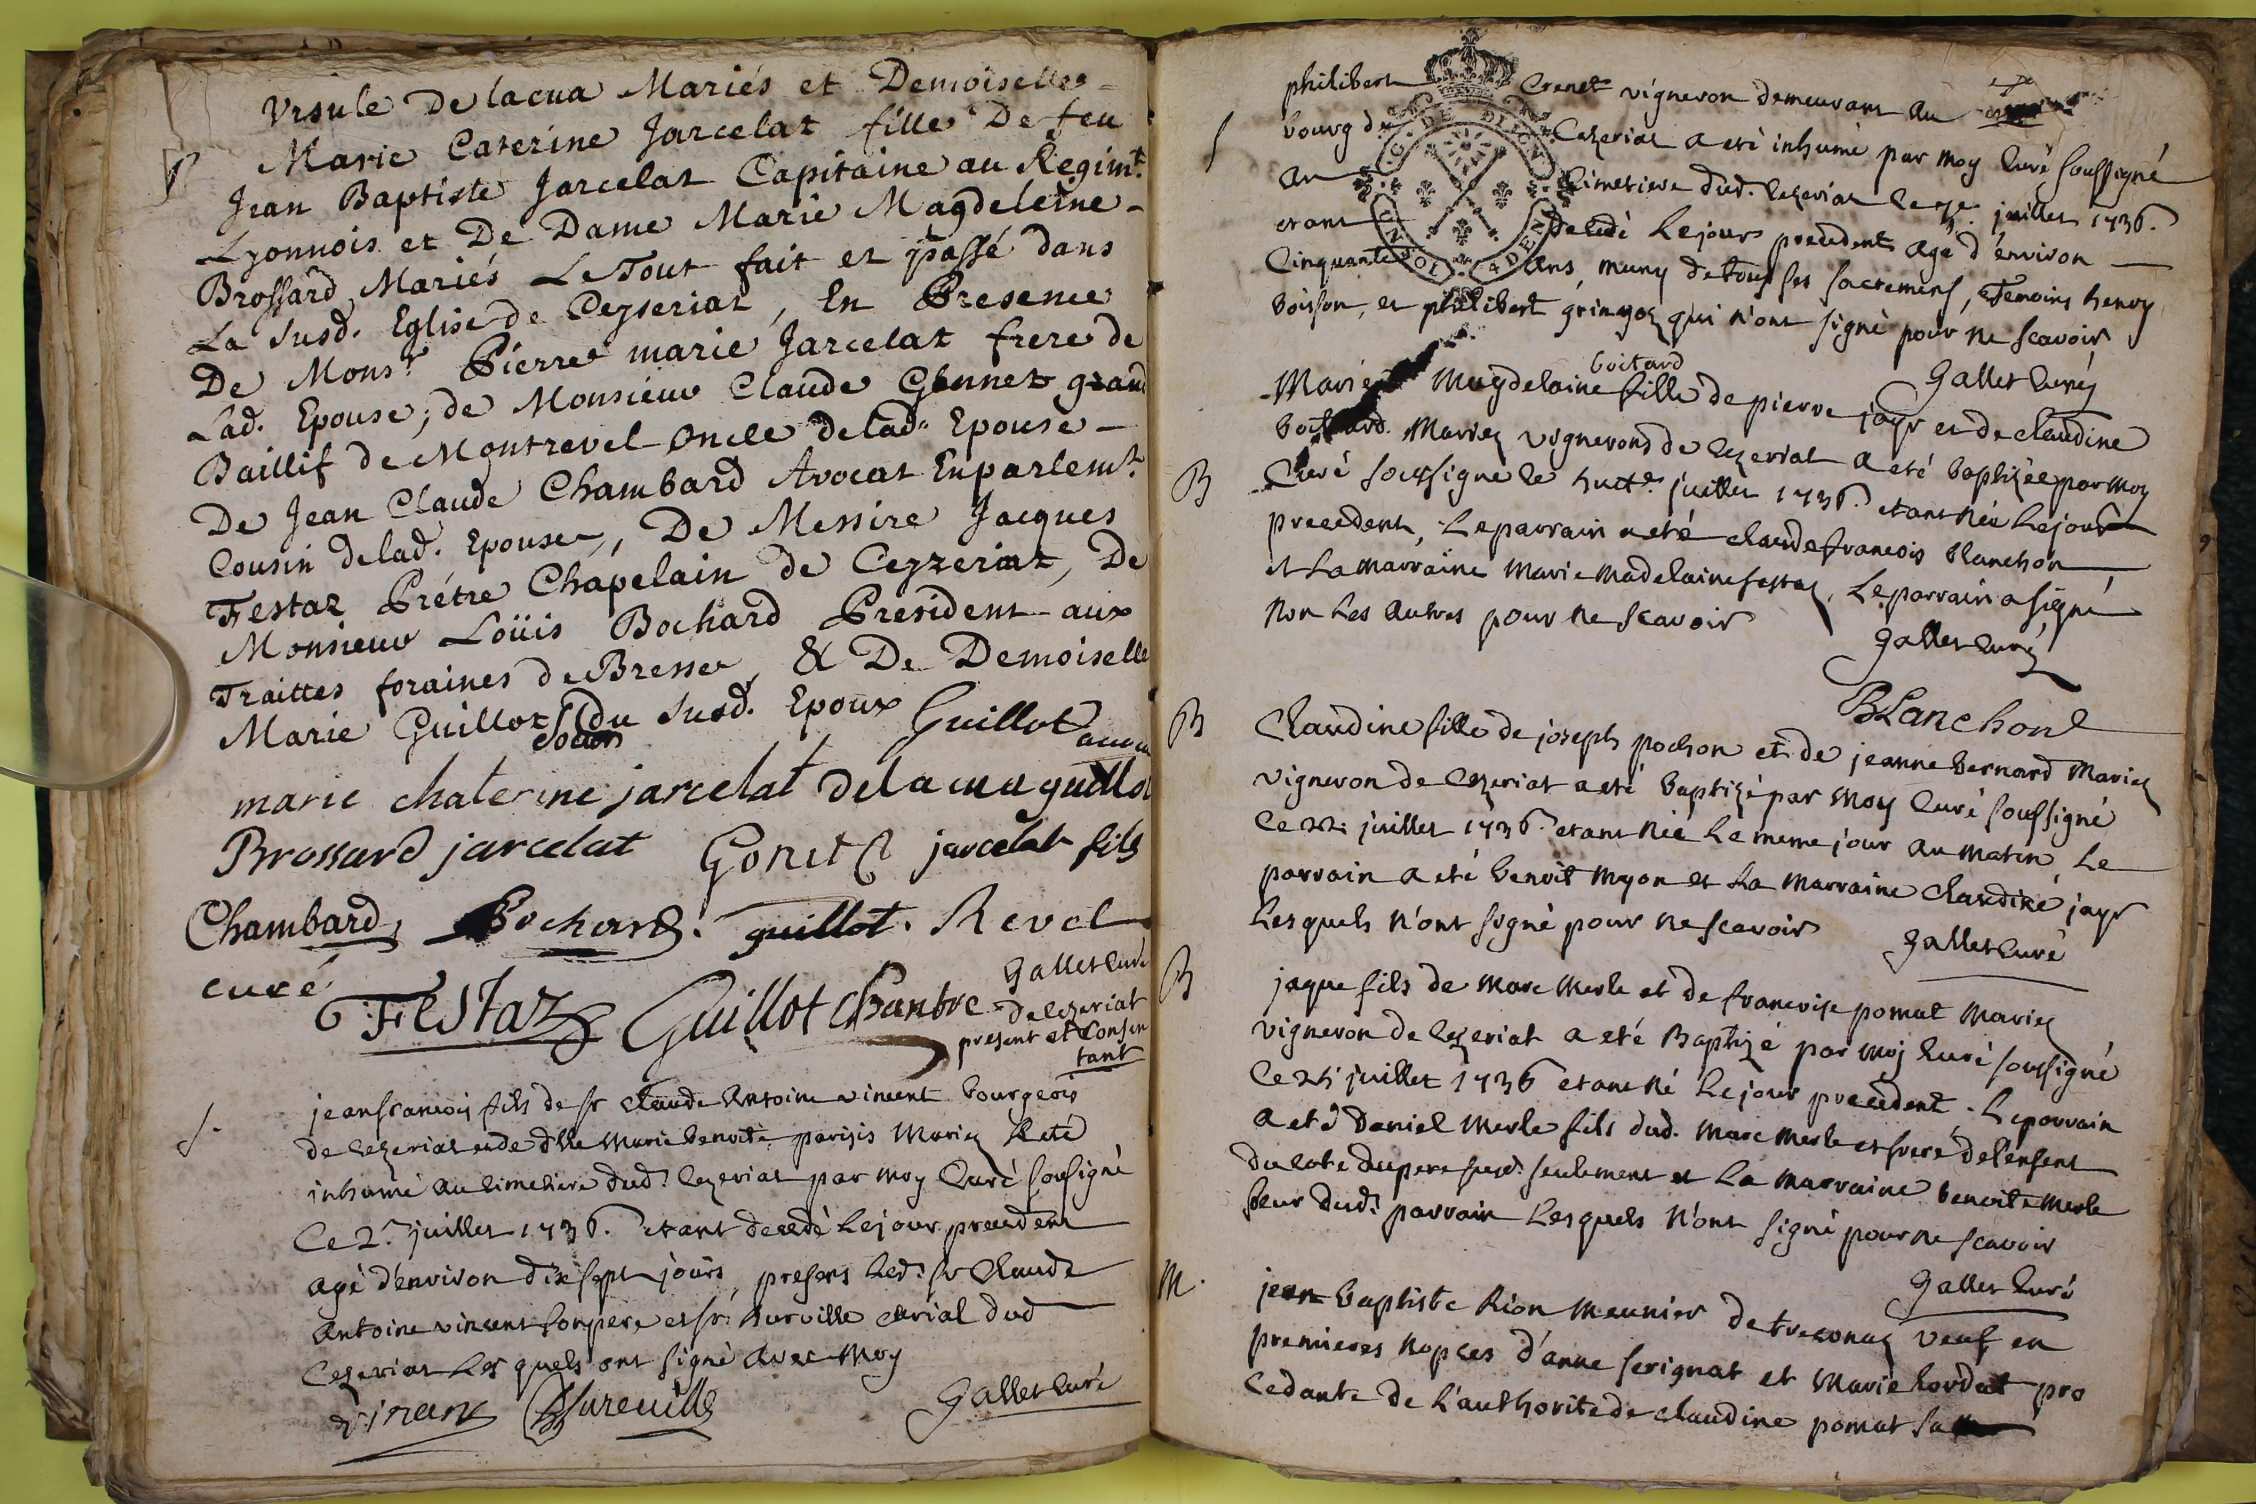 Ursule De lacua Mariés et Demoiselle
Marie Caterine Jarcelat fille De feu
Jean Baptiste Jarcelat Capitaine au Regimt.
Lyonnois et De Dame Marie Magdeleine
Brossard Mariés Le Tout fait et passé dans
La susd. Eglise de Ceyseriat, En Presence
De Monsr. Pierre marie Jarcelat frere de
Lad. Epouse, de Monsieur Claude Gonnet grand
Baillif de Montrevel Oncle de lad. Epouse
De Jean Claude Chambard Avocat En parlemt.
Cousin de lad. Epouse, De Messire Jacques
Festaz Prétre Chapelain de Ceyzeriat, De
Monsieur Loüis Bochard President aux
Traittes foraines de Bresse, & De Demoiselle
Marie Guillot soeur du susd. Epoux Guillot
marie chaterine jarcelat De la cua guillot
Brossard jarcelat Gonet jarcelat fils
Chambard, Bochard. guillot. Revel
curé
Festaz Guillot Chantre
Gallet Curé
de Cezeriat
present et Consen
tant
S.
jean francois fils de sr Claude Antoine vincent bourgeois
de Cezeriat et de dlle Marie benoite parisis Mariez a eté
inhumé au Cimetiere dud. Cezeriat par moy Curé sousigné
Ce 2. juillet 1736. etant decedé le jour precedent
agé d'environ dix sept jours, presens led. sr Claude
Antoine vincent son pere et sr. surville curial dud
Cezeriat Lesquels ont signé avec moy
vincent Sureuille Gallet Curé
S
philibert Crenet vigneron demeurant au
bourg de Cezeriat a eté inhumé par moy Curé soussigné
au Cimetiere dud. Cezeriat le 7e. juillet 1736.
etant decedé Le jour precedent agé d'environ
Cinquante ans, muny de tous ses sacremens, Temoins henry
boisson, et philibert gringoz qui n'ont signé pour ne scavoir
Gallet Curé
B
Marie Magdelaine fille de pierre jayr et de claudine
boitard
Mariez vignerond de Cezeriat a eté baptizée par moy
Curé soussigné le huitt. juillet 1736. etant née le jour
precedent, Le parrain a eté claude francois blanchon
et La marraine Marie Madelaine festaz, Le parrain a signé
Non Les autres pour ne scavoir
Gallet Curé
Blanchon
B
Claudine fille de joseph pochon et de jeanne bernard Mariez
vigneron de Cezeriat a eté baptizé par Moy Curé soussigné
Ce 22. juillet 1736. etant née Le meme jour au matin, Le
parrain a eté benoit myon et La marraine Claudine jayr
Lesquels n'ont signé pour ne scavoir
Gallet Curé
B
jaque fils de Marc Merle et de francoise pomat Mariez
vigneron de Cezeriat a eté Baptizé par Moj Curé soussigné
Ce juillet 1736 etant né Le jour precedent. Le parrain
a eté Daniel Merle fils dud. Marc Merle et frere de l'enfant
du coté du pere susd. seulement et La marraine benoite Merle
seur dud. parrain Lesquels n'ont signé pour ne scavoir
Gallet Curé
M.
jean baptiste Rion Meunier de treconaz veuf en
premieres nopces d'anne serignat et Marie Cordat pro
Cedante de L'authorite de Claudine pomat sa